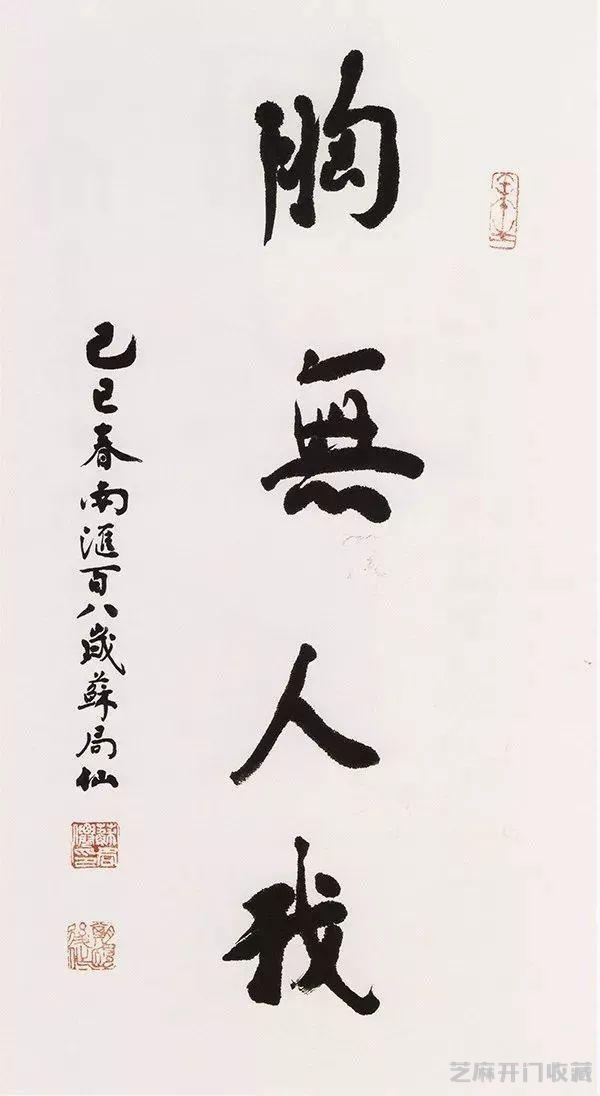 胸無人我
己巳春南滙百八歲蘇局仙
芝麻开门收藏